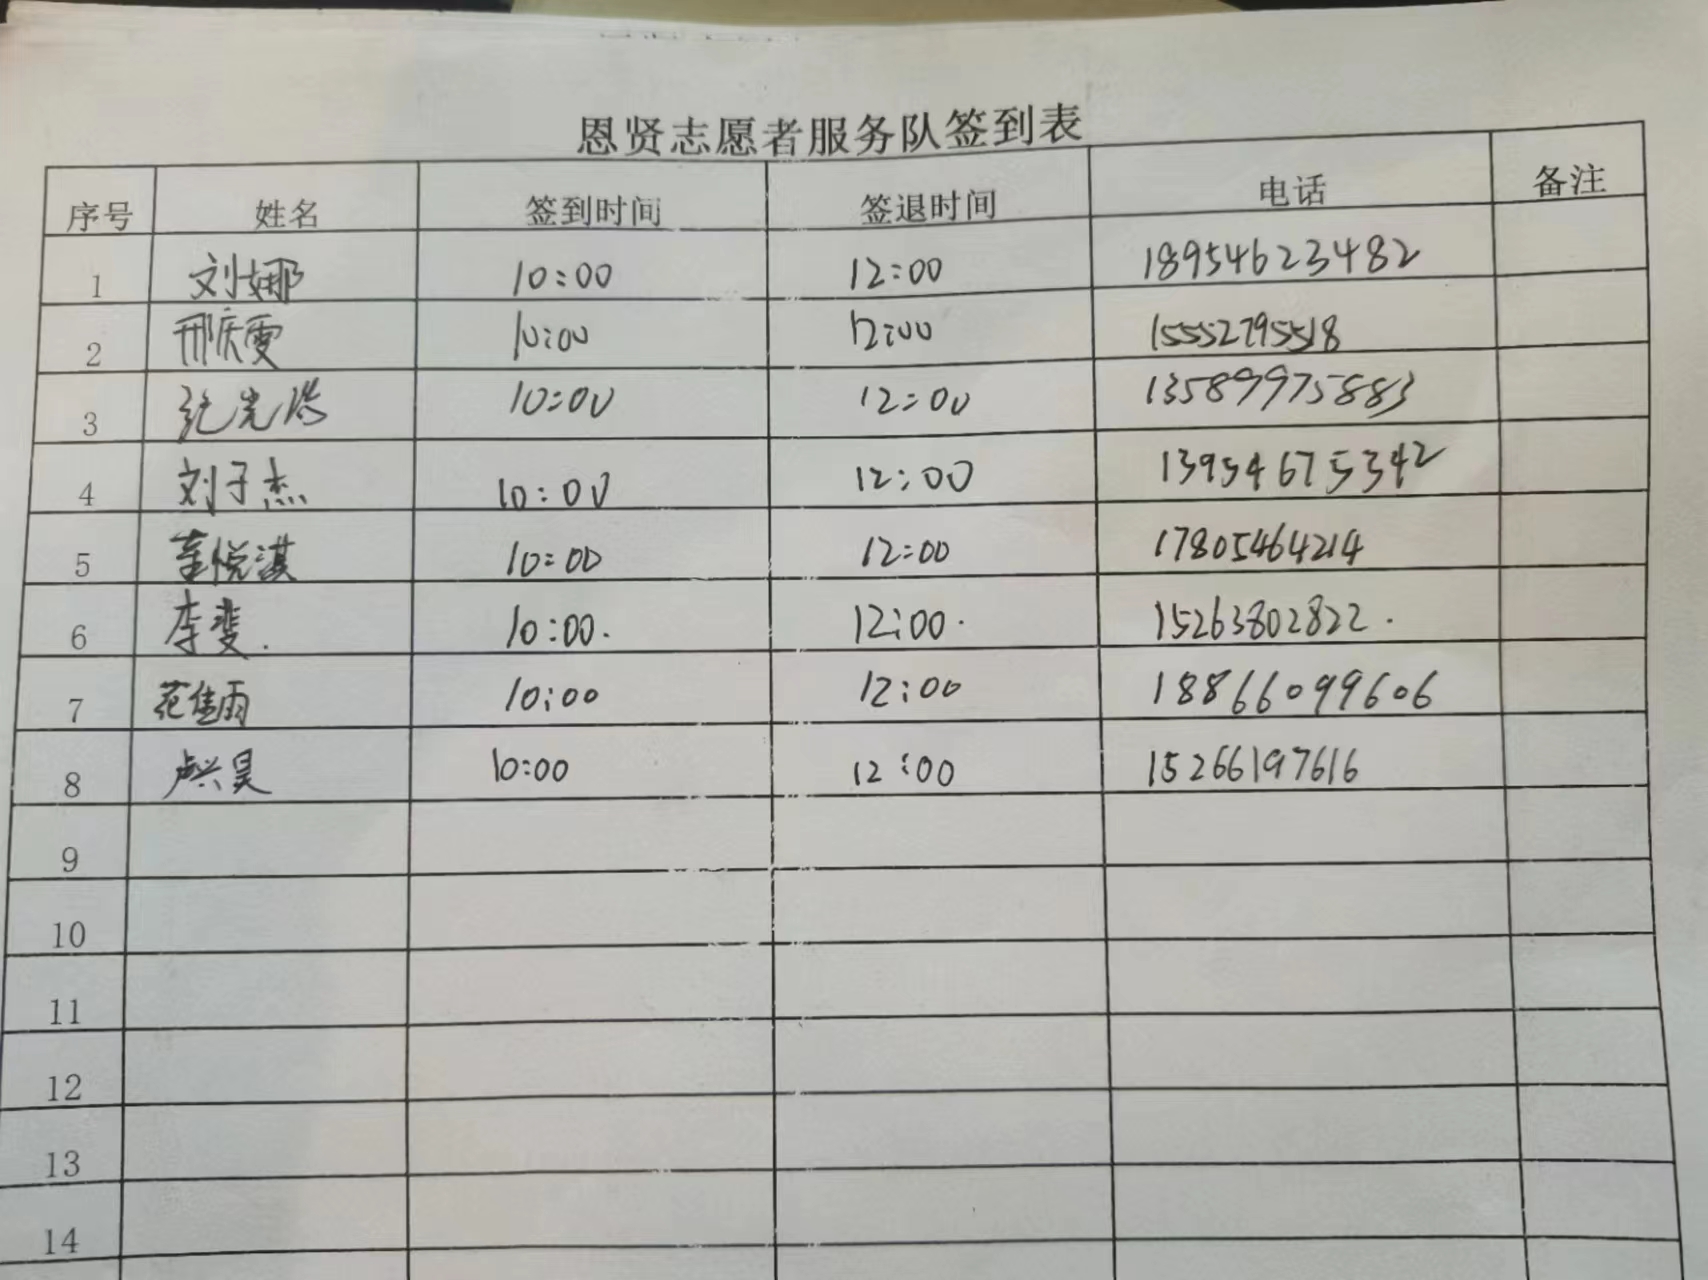 恩贤志愿者服务队签到表
序号 姓名 签到时间 签退时间 电话 备注
1 刘娜 10:00 12:00 18954623482
2 邢庆雯 10:00 12:00 15552795518
3 纪光浩 10:00 12:00 13589975883
4 刘子杰 10:00 12:00 13954675342
5 董悦淇 10:00 12:00 17805464214
6 李斐. 10:00. 12:00. 15263802822.
7 范佳雨 10:00 12:00 18866099606
8 卢兴昊 10:00 12:00 15266197616
9
10
11
12
13
14